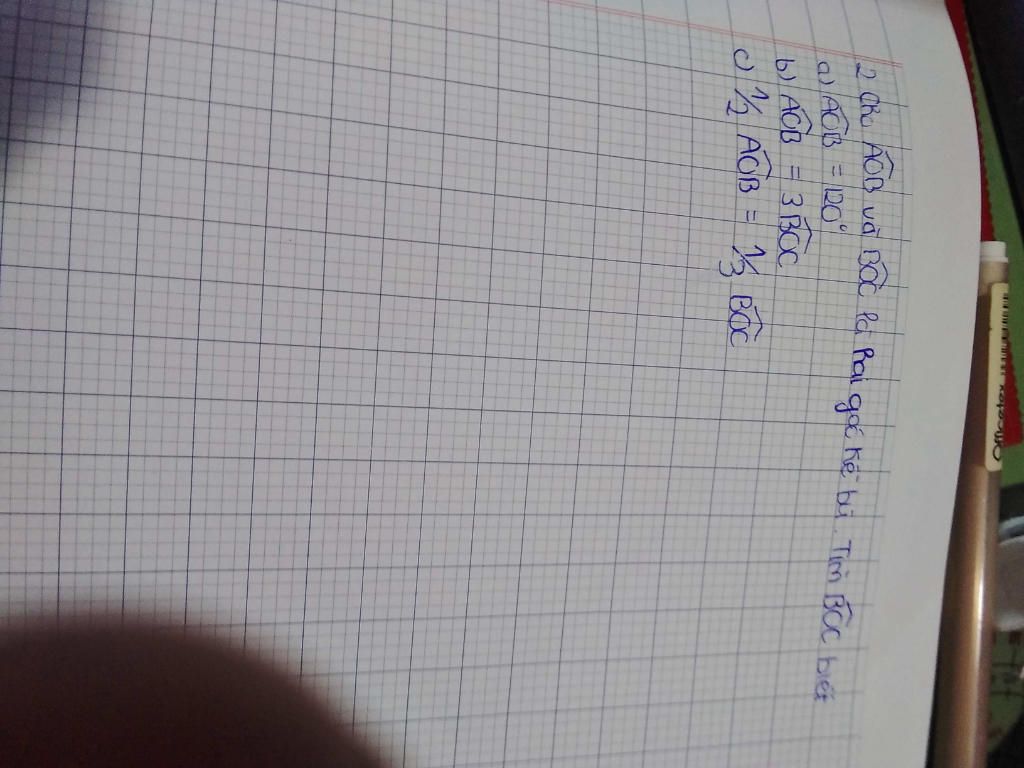 2 Cho AÔB và BÔC là hai góc kề bù. Tìm BÔC biết
a) AÔB = 120°
b) AÔB = 3 BÔC
c) 1/2 AÔB = 1/3 BÔC
Officetex